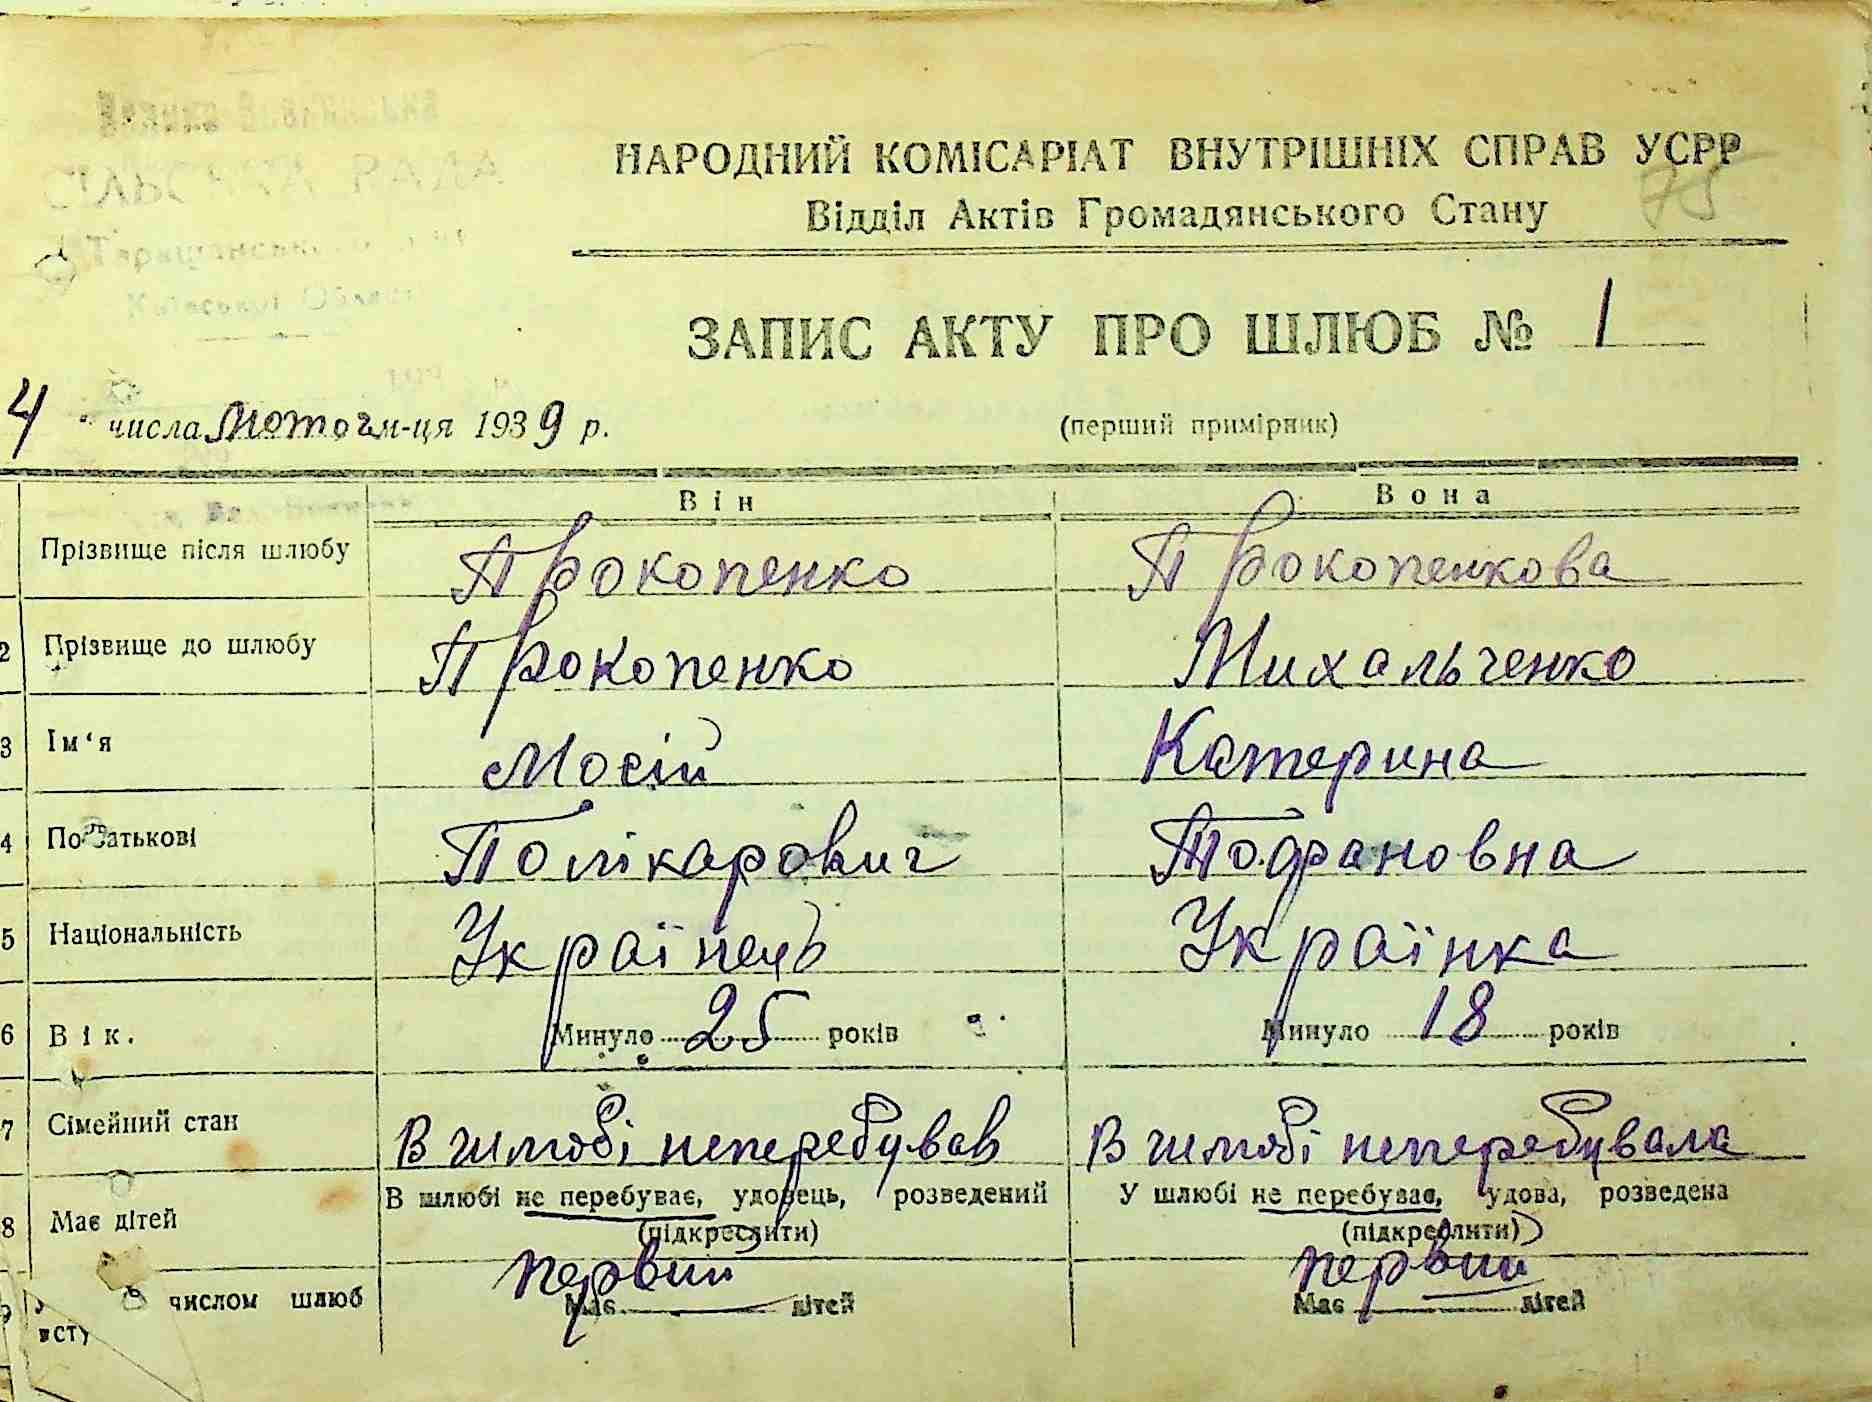 СІЛЬСЬКА РАДА
Київської Області
НАРОДНИЙ КОМІСАРІАТ ВНУТРІШНІХ СПРАВ УСРР
75
Відділ Актів Громадянського Стану
ЗАПИС АКТУ ПРО ШЛЮБ № 1
4 числа Лютого м-ця 1939 р.
(перший примірник)
Він Вона
Прізвище після шлюбу Прокопенко Прокопенкова
2 Прізвище до шлюбу Прокопенко Михальченко
3 Ім'я Мосій Катерина
4 По батькові Полікарович Тофрановна
5 Національність Українець Українка
6 Вік. Минуло 25 років Минуло 18 років
7 Сімейний стан В шлюбі неперебував В шлюбі неперебувала
В шлюбі не перебуває, удовець, розведений У шлюбі не перебуває, удова, розведена
(підкреслити) (підкреслити)
8 Має дітей первий первий
Має дітей Має дітей
числом шлюб